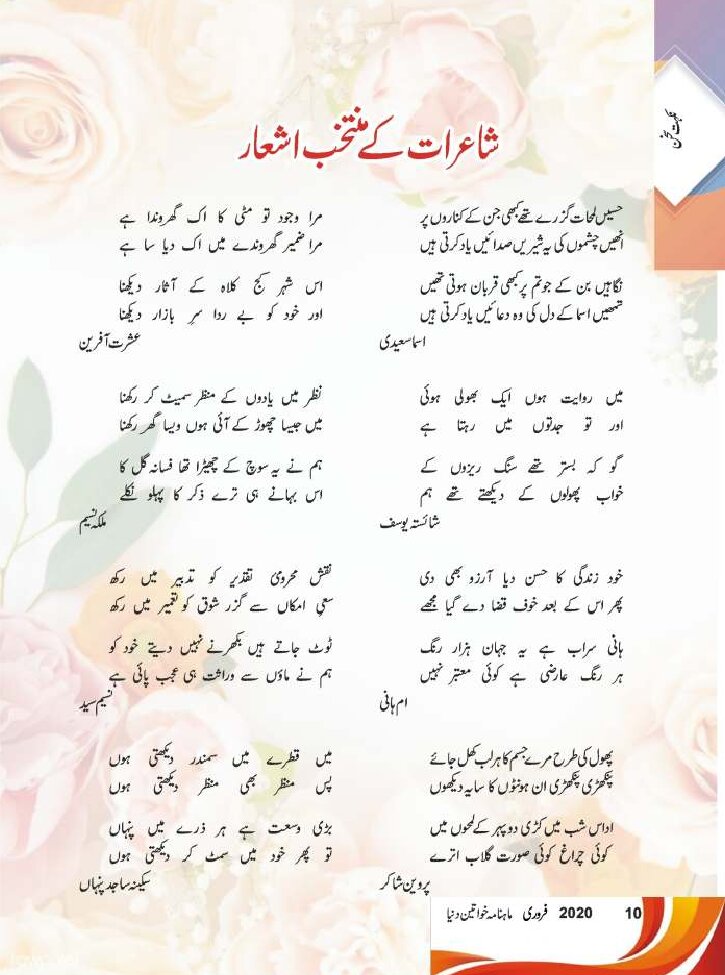 نکہت سخن
شاعرات کے منتخب اشعار
حسیں لمحات گزرے تھے کبھی جن کے کناروں پر
انھیں چشموں کی یہ شیریں صدائیں یاد کرتی ہیں
نگاہیں بن کے جو تم پر کبھی قربان ہوتی تھیں
تمھیں اسما کے دل کی وہ دعائیں یاد کرتی ہیں
اسما سعیدی
میں روایت ہوں ایک بھولی ہوئی
اور تو جدتوں میں رہتا ہے
گو کہ بستر تھے سنگ ریزوں کے
خواب پھولوں کے دیکھتے تھے ہم
شائستہ یوسف
خود زندگی کا حسن دیا آرزو بھی دی
پھر اس کے بعد خوف قضا دے گیا مجھے
ہانی سراب ہے یہ جہان ہزار رنگ
ہر رنگ عارضی ہے کوئی معتبر نہیں
ام ہانی
پھول کی طرح مرے جسم کا ہر لب کھل جائے
پنکھڑی پنکھڑی ان ہونٹوں کا سایہ دیکھوں
اداس شب میں کڑی دوپہر کے لمحوں میں
کوئی چراغ کوئی صورت گلاب اترے
پروین شاکر
مرا وجود تو مٹی کا اک گھروندا ہے
مرا ضمیر گھروندے میں اک دیا سا ہے
اس شہر کج کلاہ کے آثار دیکھنا
اور خود کو بے ردا سرِ بازار دیکھنا
عشرت آفرین
نظر میں یادوں کے منظر سمیٹ کر رکھنا
میں جیسا چھوڑ کے آئی ہوں ویسا گھر رکھنا
ہم نے یہ سوچ کے چھیڑا تھا فسانہ گل کا
اس بہانے ہی ترے ذکر کا پہلو نکلے
ملکہ نسیم
نقش محرومیٔ تقدیر کو تدبیر میں رکھ
سعیِ امکاں سے گزر شوق کو تعمیر میں رکھ
ٹوٹ جاتے ہیں بکھرنے نہیں دیتے خود کو
ہم نے ماؤں سے وراثت ہی عجب پائی ہے
نسیم سید
میں قطرے میں سمندر دیکھتی ہوں
پس منظر بھی منظر دیکھتی ہوں
بڑی وسعت ہے ہر ذرے میں پنہاں
تو پھر خود میں سمٹ کر دیکھتی ہوں
سکینہ ساجد پنہاں
ماہنامہ خواتین دنیا فروری 2020 10